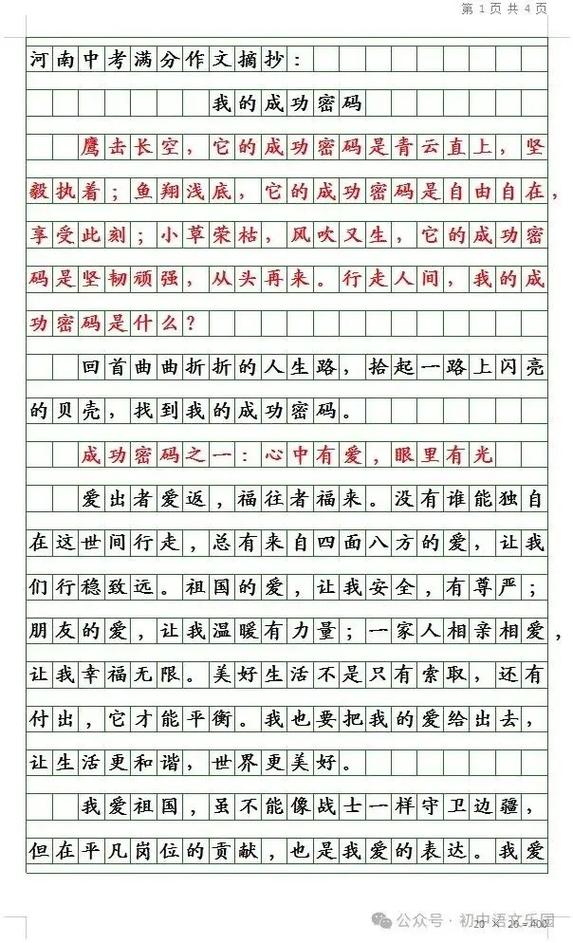 第 1 页 共 4 页
河南中考满分作文摘抄：
我的成功密码
鹰击长空，它的成功密码是青云直上，坚
毅执着；鱼翔浅底，它的成功密码是自由自在，
享受此刻；小草荣枯，风吹又生，它的成功密
码是坚韧顽强，从头再来。行走人间，我的成
功密码是什么？
回首曲曲折折的人生路，拾起一路上闪亮
的贝壳，找到我的成功密码。
成功密码之一：心中有爱，眼里有光
爱出者爱返，福往者福来。没有谁能独自
在这世间行走，总有来自四面八方的爱，让我
们行稳致远。祖国的爱，让我安全，有尊严；
朋友的爱，让我温暖有力量；一家人相亲相爱，
让我幸福无限。美好生活不是只有索取，还有
付出，它才能平衡。我也要把我的爱给出去，
让生活更和谐，世界更美好。
我爱祖国，虽不能像战士一样守卫边疆，
但在平凡岗位的贡献，也是我爱的表达。我爱
20 × 20 = 400
公众号 · 初中语文乐园